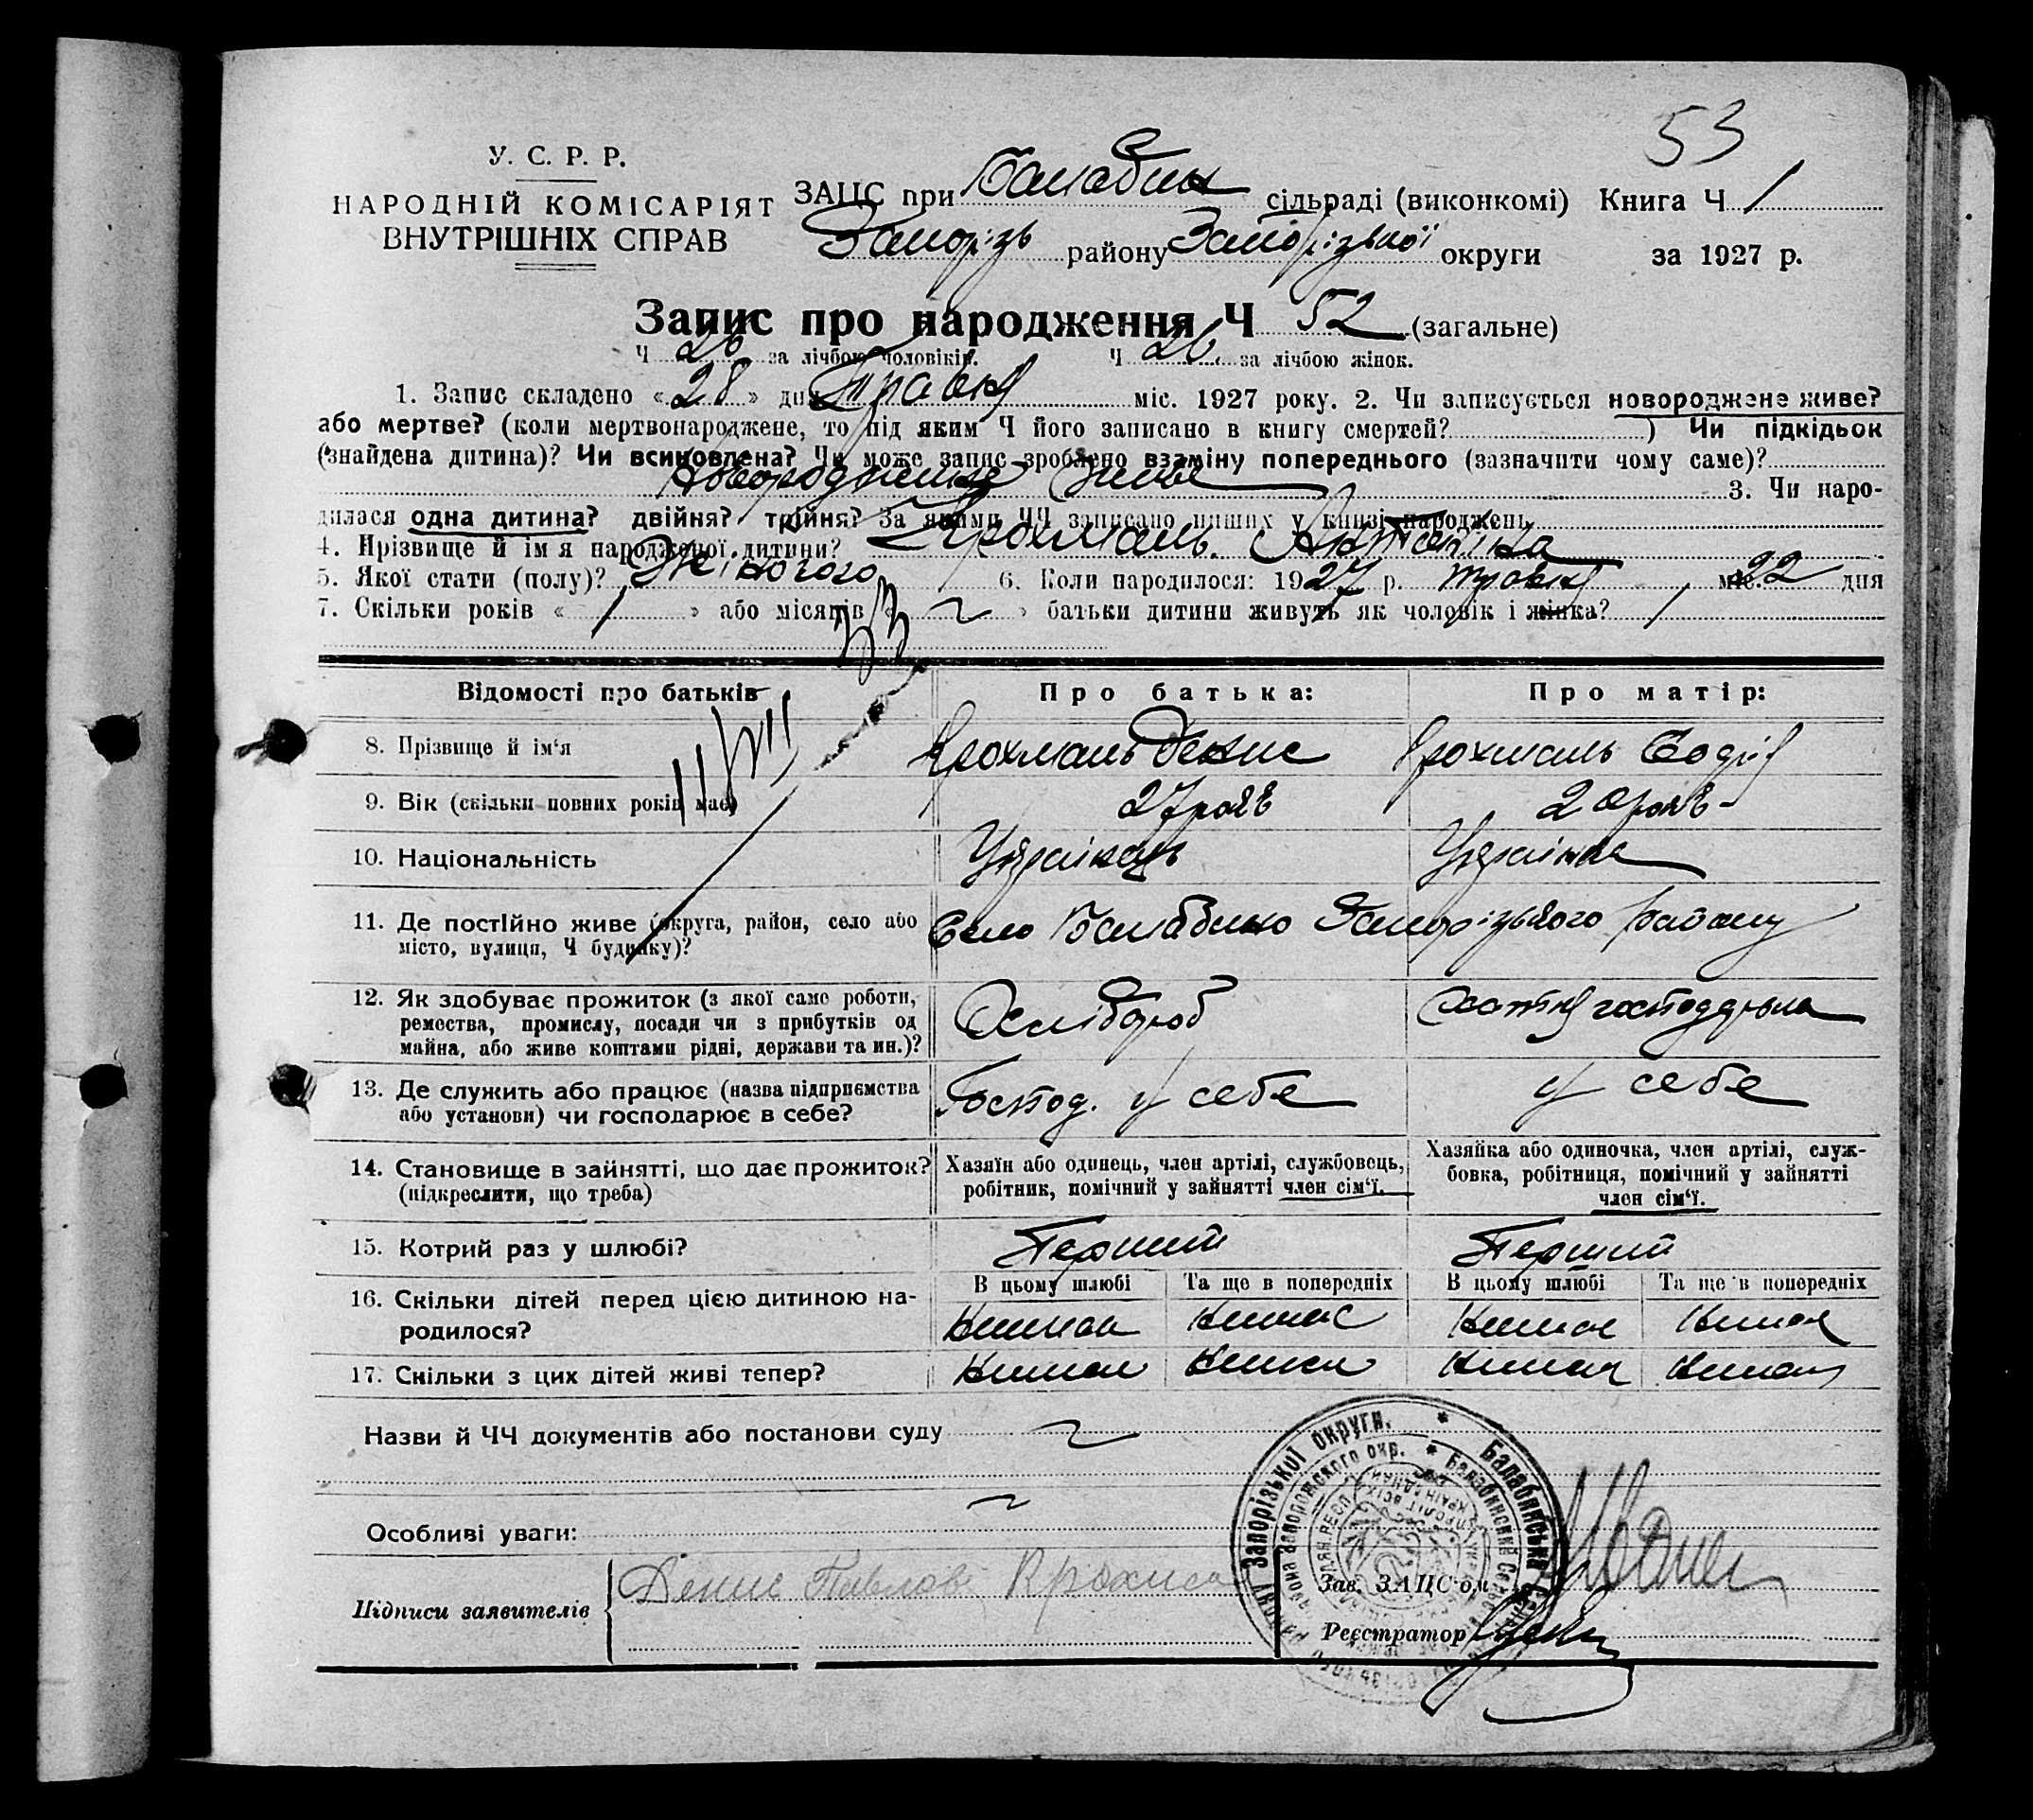 53
У. С. Р. Р.
НАРОДНІЙ КОМІСАРІЯТ
ВНУТРІШНІХ СПРАВ
ЗАЦС при Балабин сільраді (виконкомі) Книга Ч 1
Запоріз району Запорізької округи за 1927 р.
Запис про народження Ч 52 (загальне)
Ч 26 за лічбою чоловіків. Ч 26 за лічбою жінок.
1. Запис складено « 28 » дня Травня міс. 1927 року. 2. Чи записується новороджене живе?
або мертве? (коли мертвонароджене, то під яким Ч його записано в книгу смертей? ) Чи підкідьок
(знайдена дитина)? Чи всиновлена? Чи може запис зроблено взаміну попереднього (зазначити чому саме)?
Новороджене живе 3. Чи наро-
дилася одна дитина? двійня? трійня? За якими ЧЧ записано инших у книзі народжень
4. Прізвище й ім'я народженої дитини? Крохмаль Антоніна
5. Якої стати (полу)? Жіночого 6. Коли народилося: 1927 р. травня міс. 22 дня
7. Скільки років « 1 » або місяців « » батьки дитини живуть як чоловік і жінка?
Відомості про батьків Про батька: Про матір:
8. Прізвище й ім'я Крохмаль Денис Крохмаль
9. Вік (скільки повних років має) 27 рок. 20 рок.
10. Національність Українець Українка
11. Де постійно живе (округа, район, село або
місто, вулиця, Ч будинку)? Село Балабино Запорізького району
12. Як здобуває прожиток (з якої саме роботи,
ремества, промислу, посади чи з прибутків од
майна, або живе коштами рідні, держави та ин.)? Хлібороб Хатня
13. Де служить або працює (назва підприємства
або установи) чи господарює в себе? Господ. у себе у себе
14. Становище в зайнятті, що дає прожиток?
(підкреслити, що треба)
Хазяїн або одинець, член артілі, службовець,
робітник, помічний у зайнятті член сім'ї.
Хазяйка або одиночка, член артілі, служ-
бовка, робітниця, помічний у зайнятті
член сім'ї.
15. Котрий раз у шлюбі? Перший Перший
В цьому шлюбі Та ще в попередніх В цьому шлюбі Та ще в попередніх
16. Скільки дітей перед цією дитиною на-
родилося? Немає Немає Немає Немає
17. Скільки з цих дітей живі тепер? Немає Немає Немає Немає
Назви й ЧЧ документів або постанови суду
Особливі уваги:
Підписи заявителів Денис Павлов Крохмаль
Зав. ЗАЦС'ом
Реєстратор